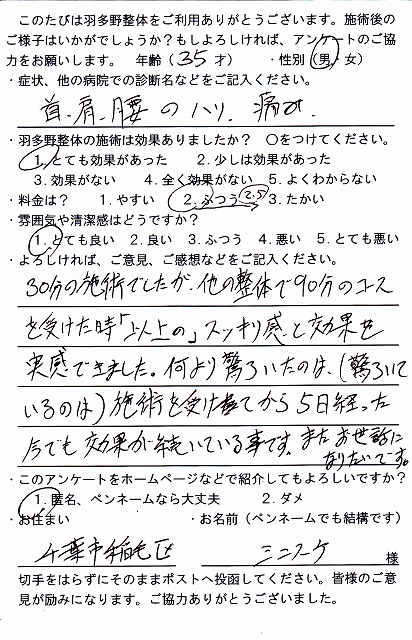 このたびは羽多野整体をご利用ありがとうございます。施術後の
ご様子はいかがでしょうか?もしよろしければ、アンケートのご協
力をお願いします。 年齢(35才) ・性別(男・女)
・症状、他の病院での診断名などをご記入ください。
首、肩、腰のハリ、痛み、
・羽多野整体の施術は効果ありましたか? ○をつけてください。
1. とても効果があった 2. 少しは効果があった
3. 効果がない 4. 全く効果がない 5. よくわからない
・料金は? 1. やすい 2. ふつう 2.5 3. たかい
・雰囲気や清潔感はどうですか?
1. とても良い 2. 良い 3. ふつう 4. 悪い 5. とても悪い
・よろしければ、ご意見、ご感想などをご記入ください。
30分の施術でしたが、他の整体で90分のコース
を受けた時「以上の」スッキリ感と効果を
実感できました。何より驚ろいたのは、(驚ろいて
いるのは)施術を受けてから5日経った
今でも効果が続いている事です。またお世話に
なりたいです。
・このアンケートをホームページなどで紹介してもよろしいですか?
1. 匿名、ペンネームなら大丈夫 2. ダメ
・お住まい ・お名前(ペンネームでも結構です)
千葉市稲毛区 ミニスーケ 様
切手をはらずにそのままポストへ投函してください。皆様のご意
見が励みになります。ご協力ありがとうございました。